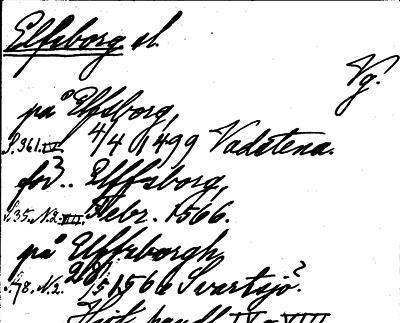 Elfsborg sl.
Vg.
på Elfsborg,
S. 361. IV. 4/4 1499 Vadstena.
for? .. Elffsborg,
S. 35. N. 2. VII. Febr. 1566.
på Elffzborgh
S. 78. N. 2. 28/5 1566 Svartsjö?
Hist. handl. IV - VIII